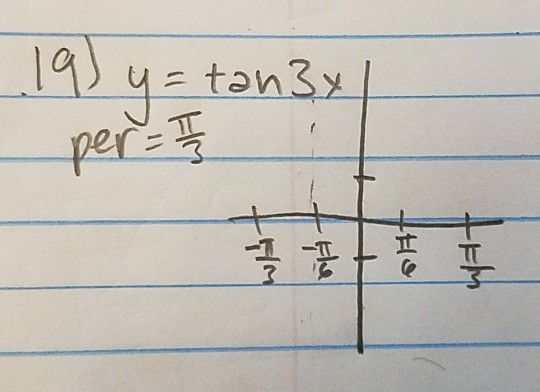 19) y = tan3x
per = π/3
-π/3 -π/6 π/6 π/3